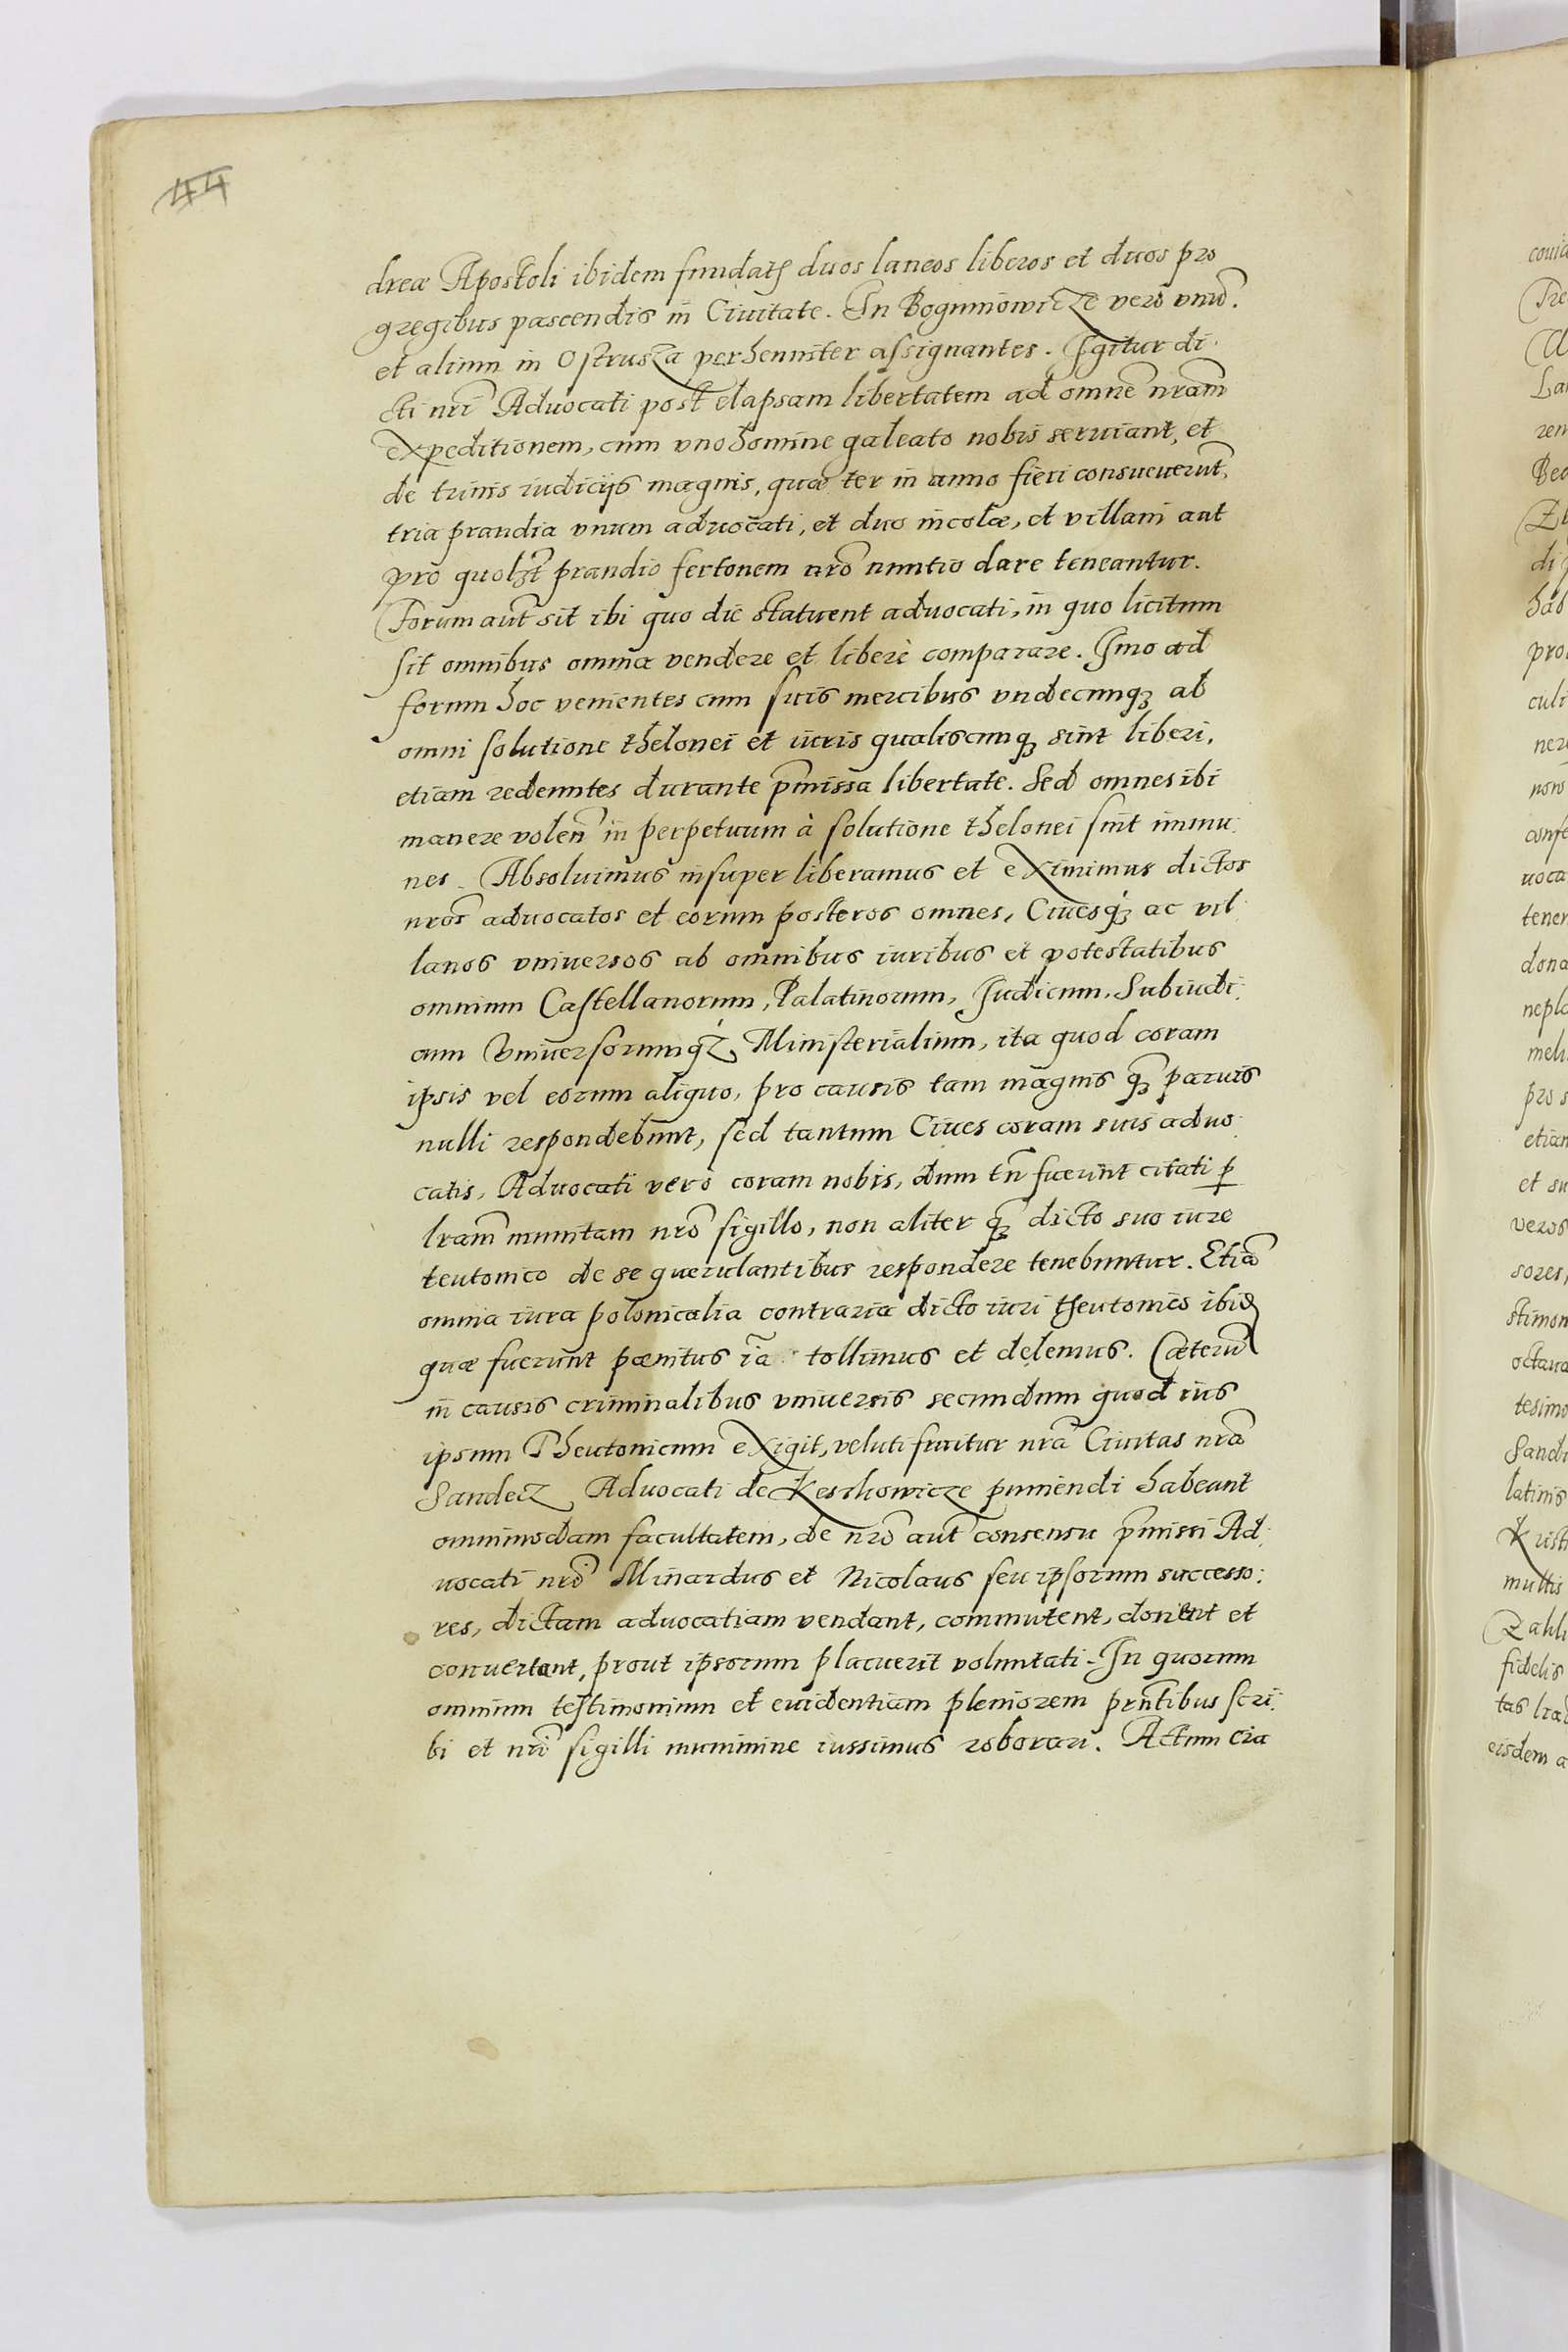 44
dreæ Apostoli ibidem fundatę duos laneos liberos et duos pro
gregibus pascendis in Ciuitate. In Boguniowicze verò vnū.
et alium in Ostrusza perhenniter assignantes. Igitur di-
cti nrī Aduocati post elapsam libertatem ad omnē nrām
expeditionem, cum vno homine galeato nobis seruiant, et
de trinis iudicijs magnis, quæ ter in anno fieri consueuerūt,
tria prandia vnum aduocati, et duo incolæ, et villani aut
pro quolꝫt prandio fertonem nrō nuntio dare teneantur.
Forum aūt sit ibi quo die statuent aduocati, in quo licitum
sit omnibus omnia vendere et liberè comparare. Imo ad
forum hoc venientes cum suis mercibus vndecunqꝫ ab
omni solutione thelonei et iuris qualiscunqꝫ sint liberi,
etiam redeuntes durante p̄missa libertate. Sed omnes ibi
manere volen̄ in perpetuum à solutione thelonei sint immu-
nes. Absoluimus insuper liberamus et eximimus dictos
nrōs aduocatos et eorum posteros omnes, Ciuesqꝫ ac vil-
lanos vniuersos ab omnibus iuribus et potestatibus
omnium Castellanorum, Palatinorum, Iudicum, Subiudi-
cum Vniuersorumqꝫ Ministerialium, ita quod coram
ipsis vel eorum aliquo, pro causis tam magnis qꝫ̄ paruis
nulli respondebunt, sed tantum Ciues coram suis aduo-
catis, Aduocati verò coram nobis, dum tn̄ fuerint citati ꝑ
lrām munitam nrō sigillo, non aliter qꝫ̄ dicto suo iure
teutonico de se querulantibus respondere tenebuntur. Etiā
omnia iura polonicalia contraria dicto iuri theutonico ibid
quæ fuerunt pœnitus iā tollimus et delemus. Cæterū
in causis criminalibus vniuersis secundum quod ius
ipsum Theutonicum exigit, veluti fruitur nrā Ciuitas nrā
Sandecz Aduocati de Keschowicze puniendi habeant
omnimodam facultatem, de nrō aūt consensu p̄missi Ad-
uocati nrī Minardus et Nicolaus seu ipsorum successo-
res, dictam aduocatiam vendant, commutent, donent et
conuertant, prout ipsorum placuerit voluntati. In quorum
omnium testimonium et euidentiam pleniorem prn̄tibus scri-
bi et nrī sigilli munimine iussimus roborari. Actum Cra